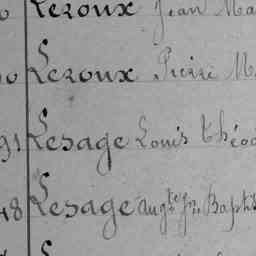 0 Leroux Jean Ma
0 Leroux Pierre M
91 Lesage Louis Théo
48 Lesage Aug.te J.n Bapt